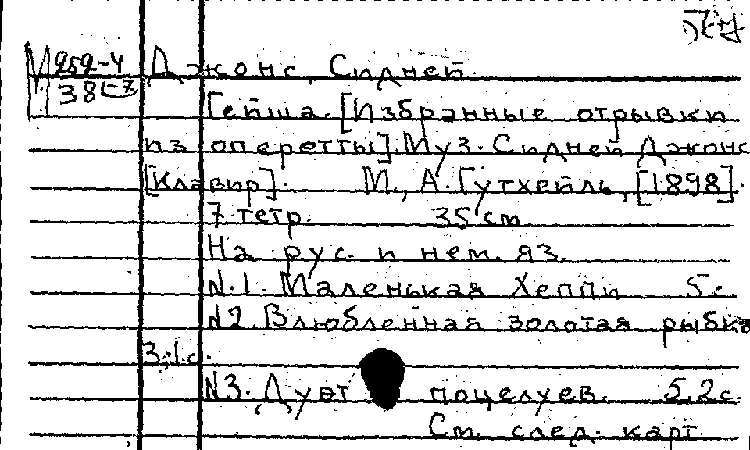 М 252-4 Джонс, Сидней
38
Гейша. [Избранные отрывки
из оперетты]. Муз. Сидней Джонс
[Клавир]. М., А. Гутхейль, [1898].
7 тетр. 35 см
На рус. и нем. яз.
N.1. Маленькая Хеппи 5 с.
N2. Влюбленная золотая рыбка
3,1 с.
N3. Дуэт поцелуев. 5,2 с.
См. след. карт